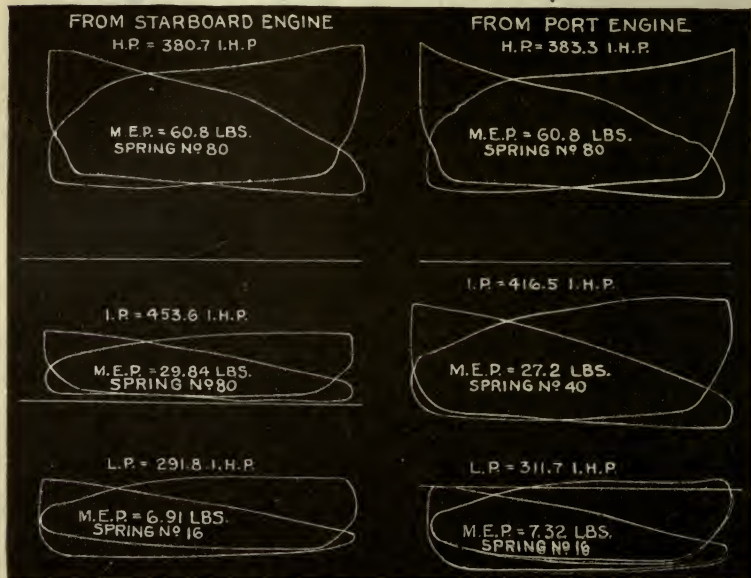 FROM STARBOARD ENGINE
H.P. = 380.7 I.H.P
M.E.P. = 60.8 LBS.
SPRING Nº 80
I.P. = 453.6 I.H.P.
M.E.P. = 29.84 LBS.
SPRING Nº 80
L.P. = 291.8 I.H.P.
M.E.P. = 6.91 LBS.
SPRING Nº 16
FROM PORT ENGINE
H.P. = 383.3 I.H.P.
M.E.P. = 60.8 LBS.
SPRING Nº 80
I.P. = 416.5 I.H.P.
M.E.P. = 27.2 LBS.
SPRING Nº 40
L.P. = 311.7 I.H.P.
M.E.P. = 7.32 LBS.
SPRING Nº 16